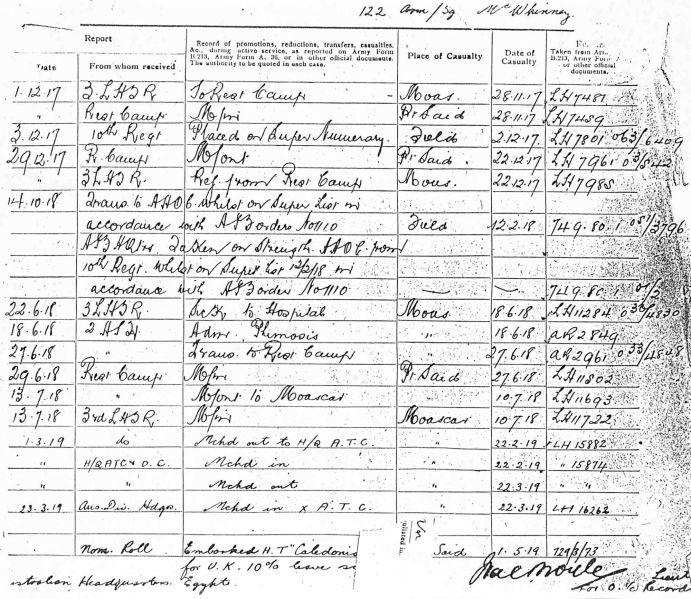 122 Arm/Sg McWhinney
Report
Record of promotions, reductions, transfers, casualties,
&c., during active service, as reported on Army Form
B.213, Army Form A. 36, or in other official documents.
The authority to be quoted in each case.
Place of Casualty
Date of
Casualty
Taken from Army
B.213, Army Form
or other official
documents.
Date
From whom received
1.12.17 3 LHTR To Rest Camp - Moas. 28.11.17 LH7481
" Rest Camp M/in Pt Said 28.11.17 LH7459
3.12.17 10th Regt Placed on Super Numerary. Field 2.12.17 LH7801 063/6409
29.12.17 R. Camp M/out Pt Said. 22.12.17 LH7961
" 3 LHTR Ret. from Rest Camp Moas. 22.12.17 LH7985
14.10.18 Trans. to AAOC whilst on Super List in
accordance with AIF orders No 1110 Field 12.2.18 749.80.1
AIF HQtrs Taken on Strength AAOC from
10th Regt. whilst on Super List 12/2/18 in
accordance with AIF order No 1110 749.80.1
22.6.18 3 LHTR Sick to Hospital Moas 18.6.18 LH11284 033/4830
18.6.18 2 ASH Adm. Phimosis " 18.6.18 AR2849
27.6.18 " Trans. to Rest Camp 27.6.18 AR2961 033/4848
29.6.18 Rest Camp M/in Pt Said 27.6.18 LH11502
13.7.18 " M/out to Moascar 10.7.18 LH11693
13.7.18 3rd LHTR. M/in Moascar 10.7.18 LH11722
1.3.19 do Mchd out to H/Q A.T.C. " 22.2.19 LH 15882
" H/Q ATC & D.C. Mchd in " 22.2.19 " 15874
" " Mchd out " 22.3.19 "
23.3.19 Aus. Div. Hdqrs. Mchd in x A.T.C. " 22.3.19 LH 16262
Nom. Roll Embarked H.T "Caledonia Said 1.5.19 729/3/73
for U.K. 10% leave
Headquarters. Egypt.
Lieut
for O. i/c Records